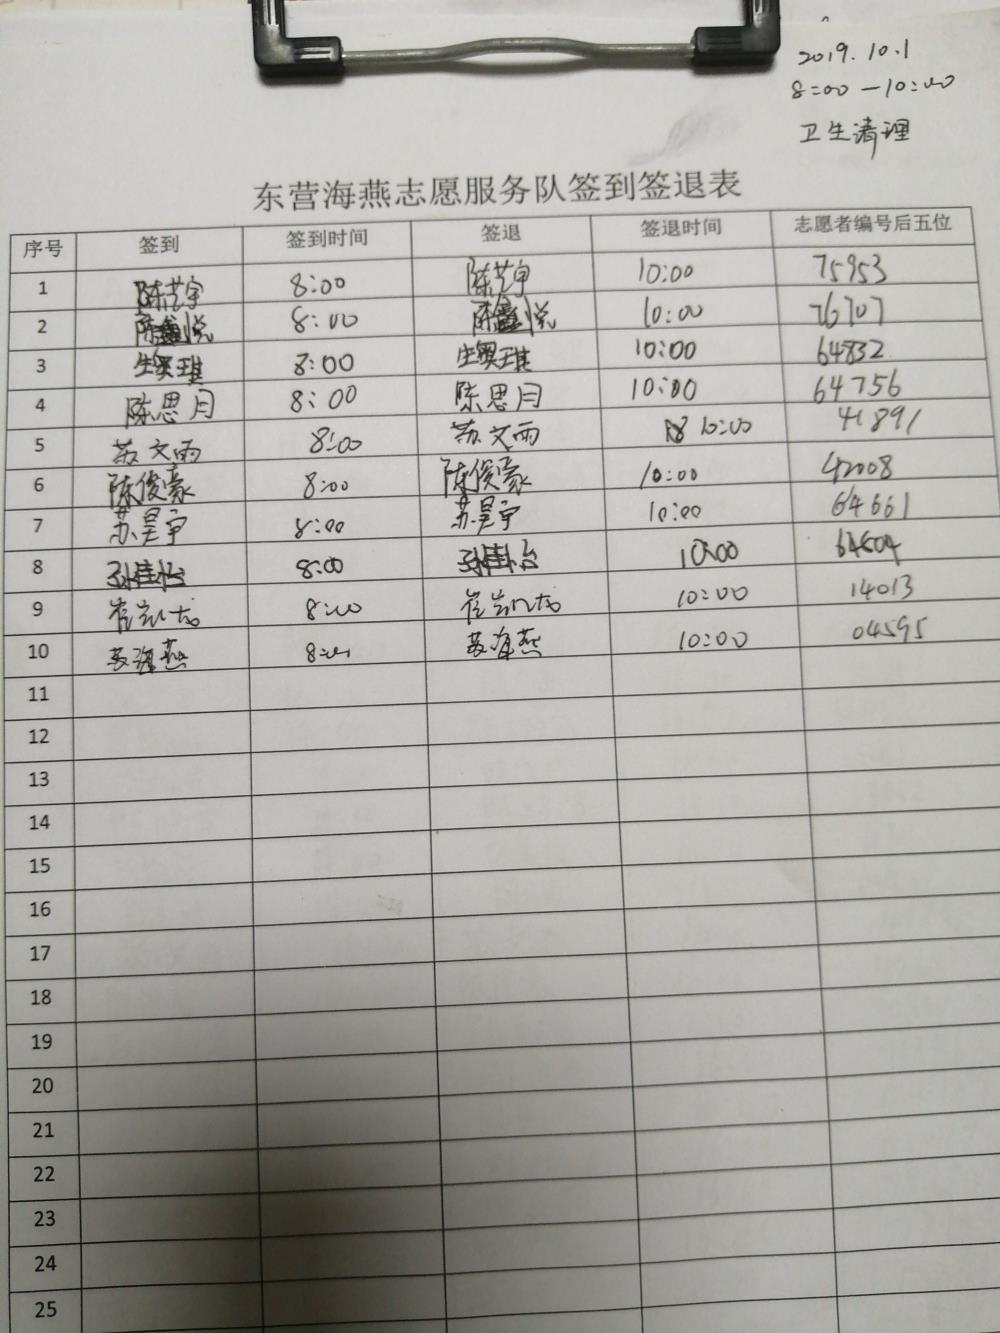 2019.10.1
8:00—10:00
卫生清理
东营海燕志愿服务队签到签退表
序号 签到 签到时间 签退 签退时间 志愿者编号后五位
1 陈艺宇 8:00 陈艺宇 10:00 75953
2 陈鑫悦 8:00 陈鑫悦 10:00 76707
3 8:00 10:00 64832
4 陈思月 8:00 陈思月 10:00 64756
5 苏文雨 8:00 苏文雨 10:00 41891
6 陈俊豪 8:00 陈俊豪 10:00 42008
7 苏昊宇 8:00 苏昊宇 10:00 64661
8 孙佳怡 8:00 孙佳怡 10:00
9 8:00 10:00 14013
10 苏海燕 8:00 苏海燕 10:00 04595
11
12
13
14
15
16
17
18
19
20
21
22
23
24
25